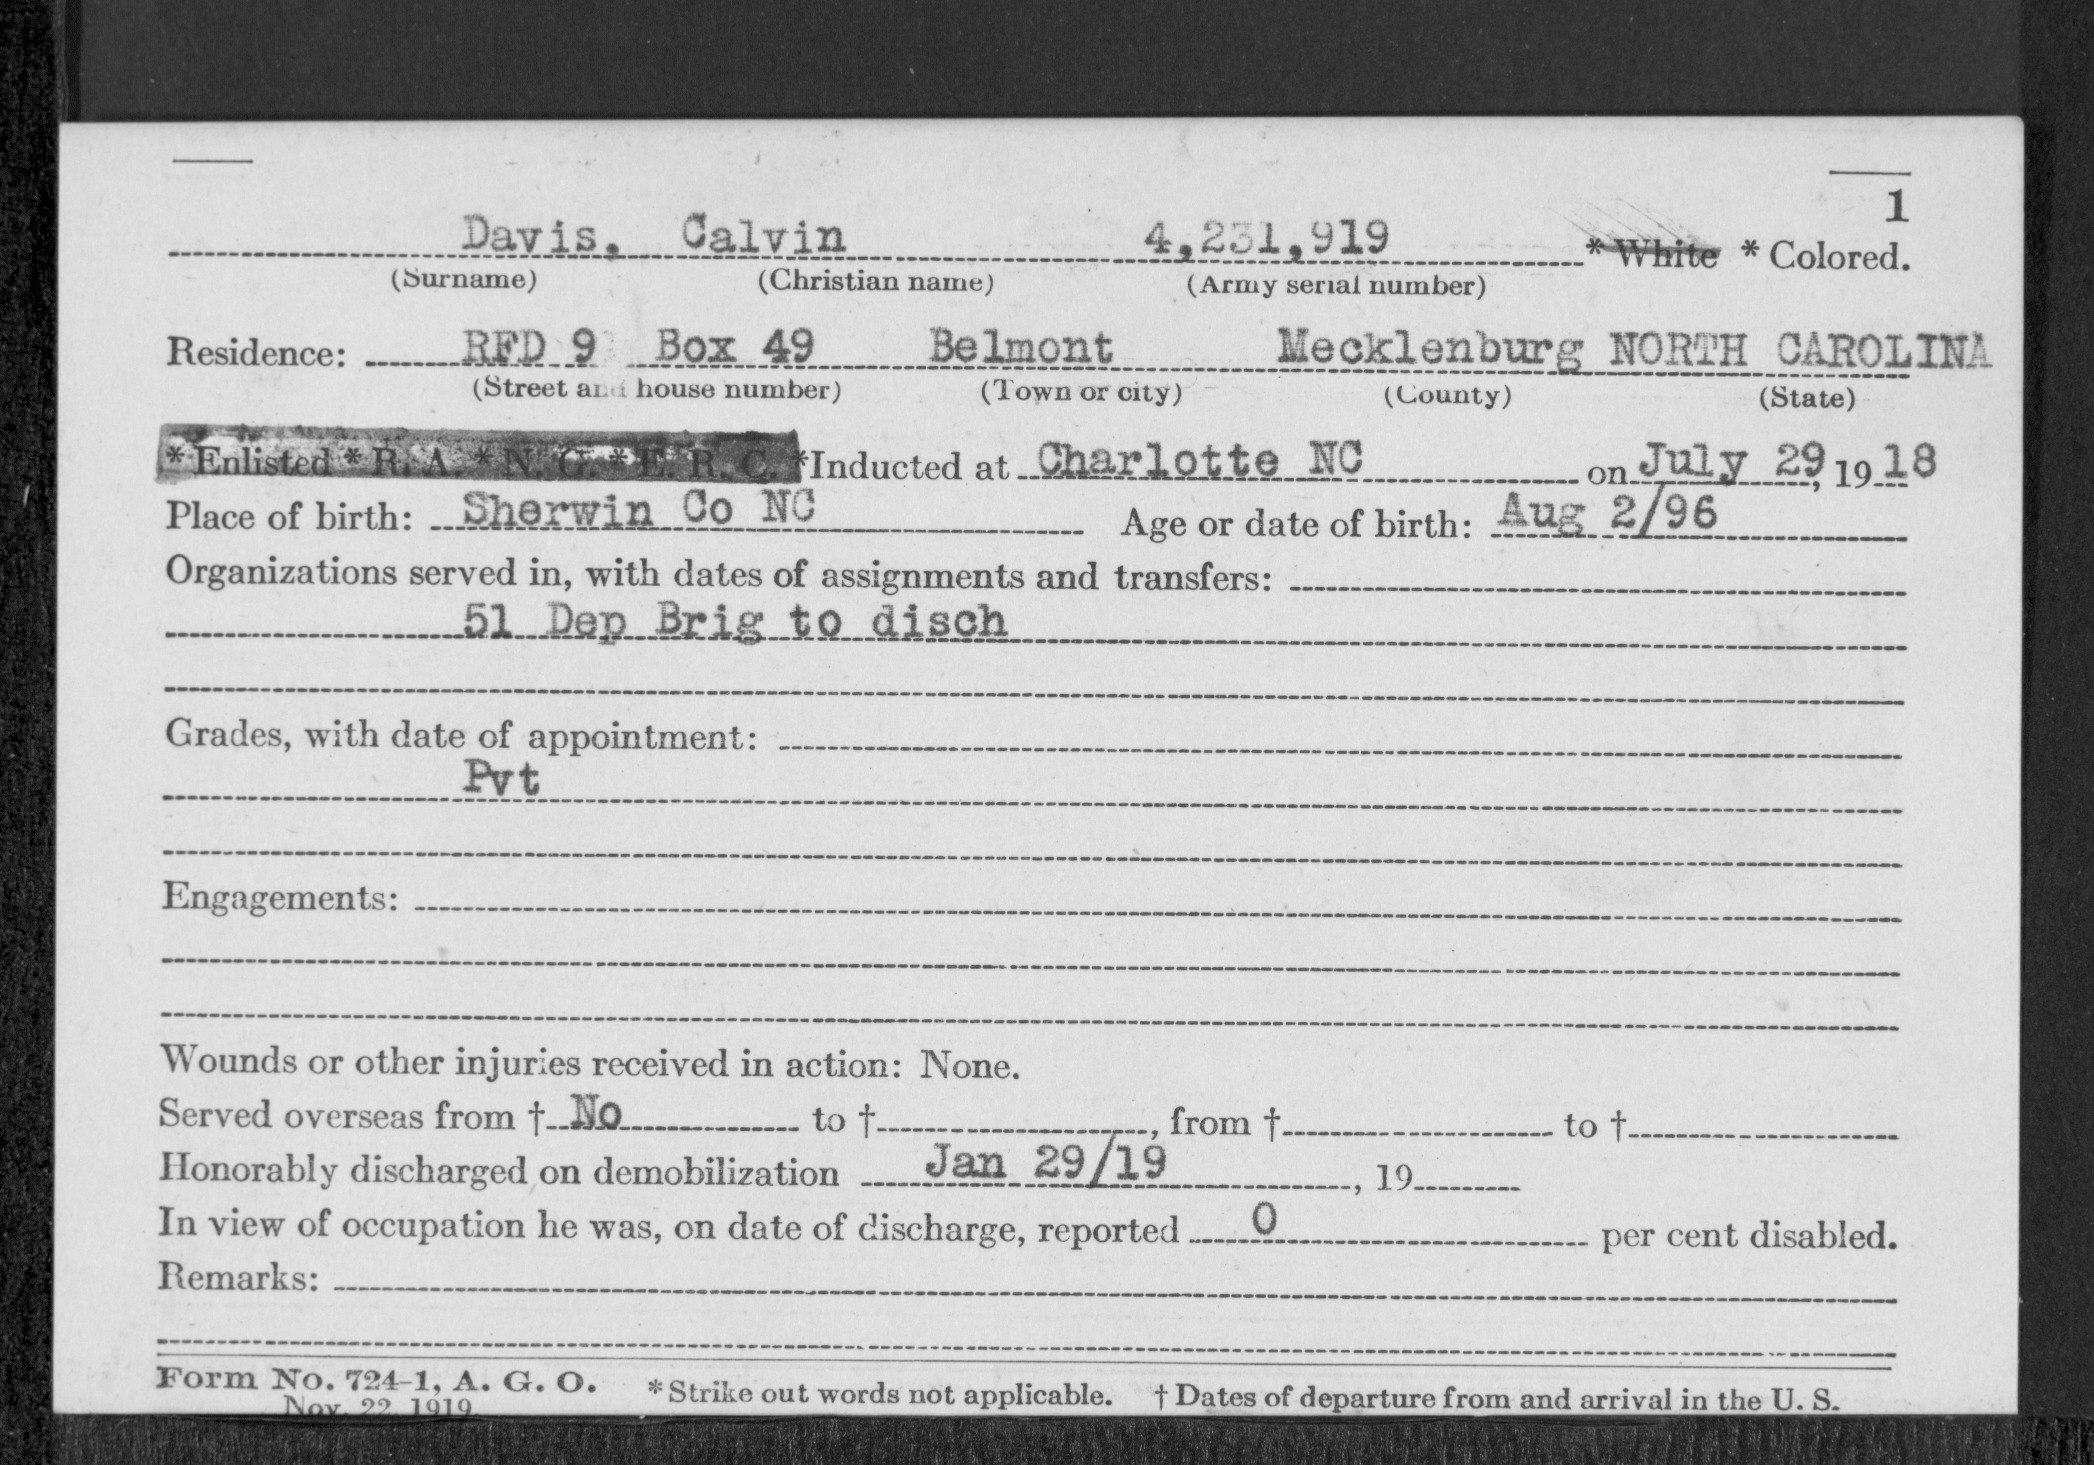 1
Davis, Calvin 4,231,919 * White * Colored.
(Surname) (Christian name) (Army serial number)
Residence: RFD 9 Box 49 Belmont Mecklenburg NORTH CAROLINA
(Street and house number) (Town or city) (County) (State)
* Enlisted * R. A. * N. G. * E. R. C. *Inducted at Charlotte NC on July 29, 1918
Place of birth: Sherwin Co NC Age or date of birth: Aug 2/96
Organizations served in, with dates of assignments and transfers:
51 Dep Brig to disch
Grades, with date of appointment:
Pvt
Engagements:
Wounds or other injuries received in action: None.
Served overseas from † No to †, from † to †
Honorably discharged on demobilization Jan 29/19, 19
In view of occupation he was, on date of discharge, reported 0 per cent disabled.
Remarks:
Form No. 724-1, A. G. O. *Strike out words not applicable. † Dates of departure from and arrival in the U. S.
Nov. 22, 1919